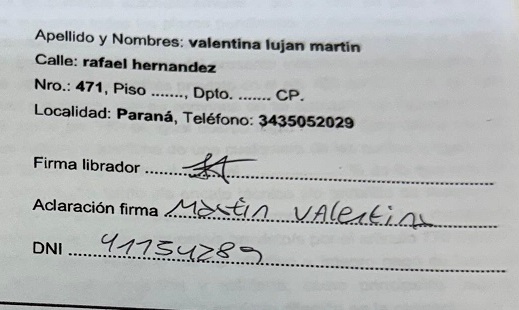 Apellido y Nombres: valentina lujan martin
Calle: rafael hernandez
Nro.: 471, Piso ......., Dpto. ....... CP.
Localidad: Paraná, Teléfono: 3435052029
Firma librador
Aclaración firma Martin VALentina
DNI 41154289